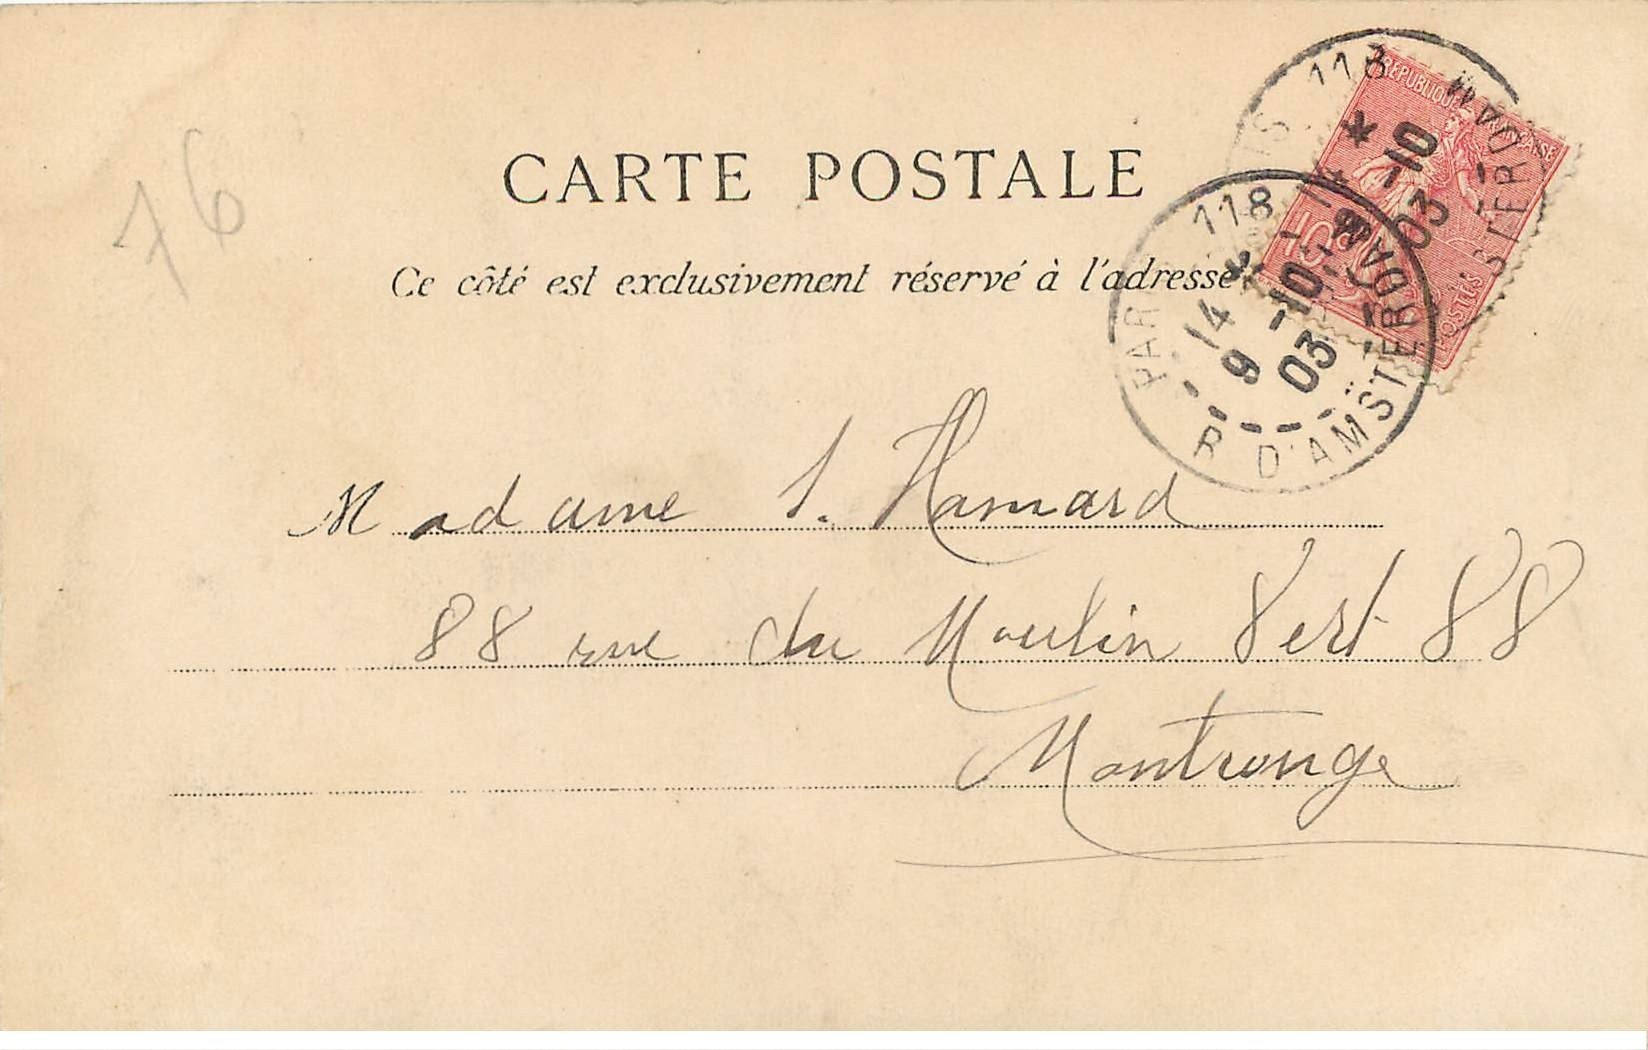 76
CARTE POSTALE
Ce côté est exclusivement réservé à l'adresse
RÉPUBLIQUE FRANÇAISE
10c
POSTES
118
* 10
03
STERDAM
PARIS 118
14 *
9 -10
03
R. D'AMSTERDAM
Madame S. Hamard
88 rue du Moulin Vert 88
Montrouge